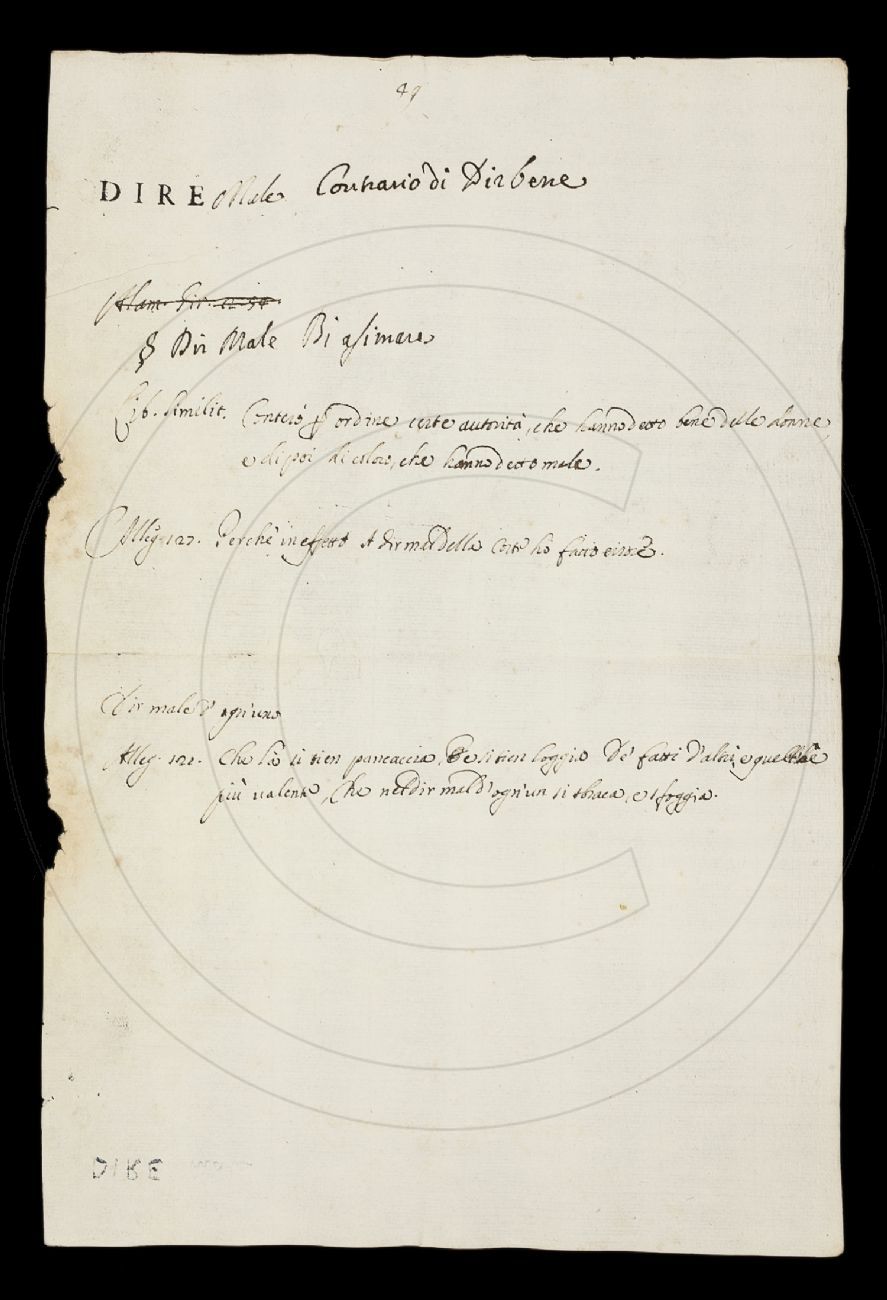 49
DIRE Male Contrario di Dir bene
Alam. Gir. 12. 54.
§ Dir Male Biasimare
Lib. Similit. Conterò p ordine certe autorità, che hanno detto bene delle donne,
e di poi di coloro, che hanno detto male.
Alleg. 127. Perchè in effetto A dir mal della Corte ho fatto
Dir male d'ogn'uno
Alleg. 121. Che là si tien pancaccia, e si tien loggia De' fatti d'altri, e quell'è
più valente, Che nel dir mal d'ogn'un si sbraca, e sfoggia.
DIRE